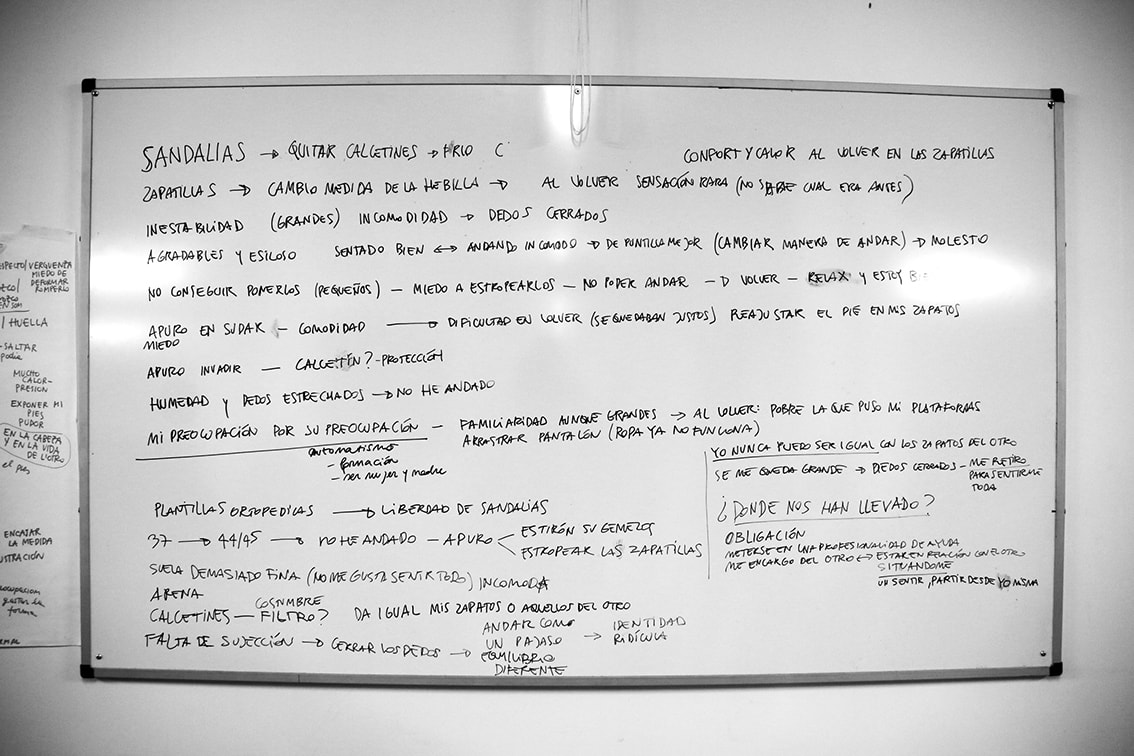 SANDALIAS → QUITAR CALCETINES → FRIO C
CONPORT Y CALOR AL VOLVER EN LAS ZAPATILLAS
ZAPATILLAS → CAMBIO MEDIDA DE LA HEBILLA → AL VOLVER SENSACIÓN RARA (NO SABE CUAL ERA ANTES)
INESTABILIDAD (GRANDES) INCOMODIDAD → DEDOS CERRADOS
AGRADABLES Y ESILOSO SENTADO BIEN ↔ ANDANDO INCOMODO → DE PUNTILLA MEJOR (CAMBIAR MANERA DE ANDAR) → MOLESTO
NO CONSEGUIR PONERLOS (PEQUEÑOS) — MIEDO A ESTROPEARLOS — NO PODER ANDAR — D VOLVER — RELAX Y ESTOY B
APURO EN SUDAR — COMODIDAD → DIFICULTAD EN VOLVER (SE QUEDABAN JUSTOS) REAJUSTAR EL PIE EN MIS ZAPATOS
MIEDO
APURO INVADIR — CALCETÍN? - PROTECCIÓN
HUMEDAD Y DEDOS ESTRECHADOS → NO HE ANDADO
MI PREOCUPACIÓN POR SU PREOCUPACIÓN — FAMILIARIDAD AUNQUE GRANDES → AL VOLVER: POBRE LA QUE PUSO MI PLATAFORMAS
ARRASTRAR PANTALÓN (ROPA YA NO FUNCIONA)
automatismo
- formación
- ser mujer y madre
PLANTILLAS ORTOPEDICAS → LIBERDAD DE SANDALIAS
37 → 44/45 → NO HE ANDADO — APURO < ESTIRÓN SU GEMELOS
ESTROPEAR LAS ZAPATILLAS
SUELA DEMASIADO FINA (NO ME GUSTA SENTIR TODO) INCOMODA
ARENA
COSNUMBRE
CALCETINES — FILTRO? DA IGUAL MIS ZAPATOS O AQUELLOS DEL OTRO
FALTA DE SUJECCIÓN → CERRAR LOS DEDOS → ANDAR COMO
UN PAJASO → IDENTIDAD
RIDÍCULA
EQUILIBRIO
DIFERENTE
YO NUNCA PUEDO SER IGUAL CON LOS ZAPATOS DEL OTRO
SE ME QUEDA GRANDE → DEDOS CERRADOS - ME RETIRO
PARA SENTIRME
TODA
¿DONDE NOS HAN LLEVADO?
OBLIGACIÓN
METERSE EN UNA PROFESIONALIDAD DE AYUDA
ME ENCARGO DEL OTRO ↔ ESTAR EN RELACIÓN CON EL OTRO
SITUANDOME
UN SENTIR, PARTIR DESDE YO MISMA
SPECTO/VERGUENZA
MIEDO DE
DEFORMAR
ROMPERLO
/ HUELLA
- SALTAR
MUCHO
CALOR -
PRESION
EXPONER MI
PIES
PUDOR
EN LA CABEPA
Y EN LA VIDA
DE L'OTRO
ENCAJAR
LA MEDIDA
USTRACIÓN
forma